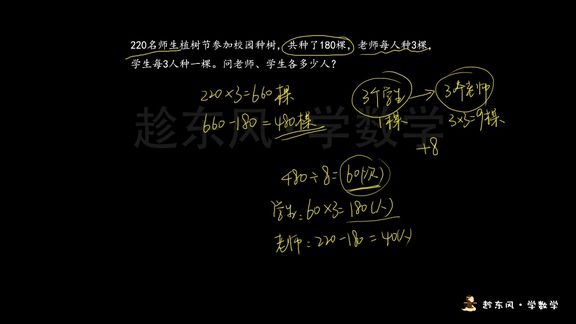 220名师生植树节参加校园种树，共种了180棵，老师每人种3棵，
学生每3人种一棵。问老师、学生各多少人？
220×3=660棵
660-180=480棵
3个学生 → 3个老师
1棵 3×3=9棵
+8
480÷8=60(次)
学生：60×3=180(人)
老师：220-180=40(人)
趁东风·学数学
趁东风·学数学